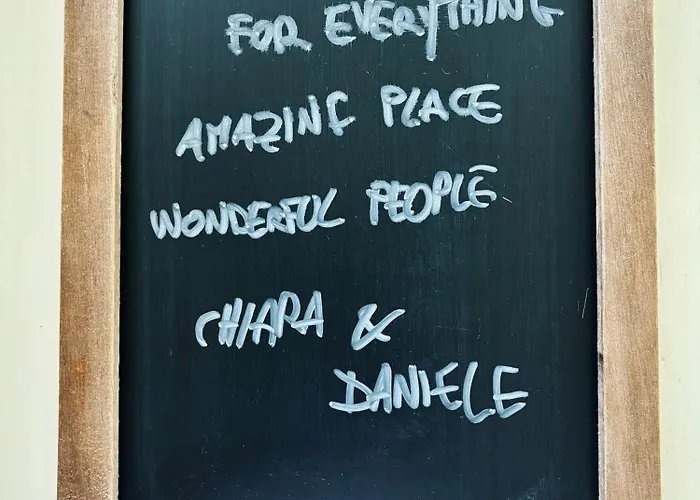 FOR EVERYTHING
AMAZING PLACE
WONDERFUL PEOPLE
CHIARA &
DANIELE